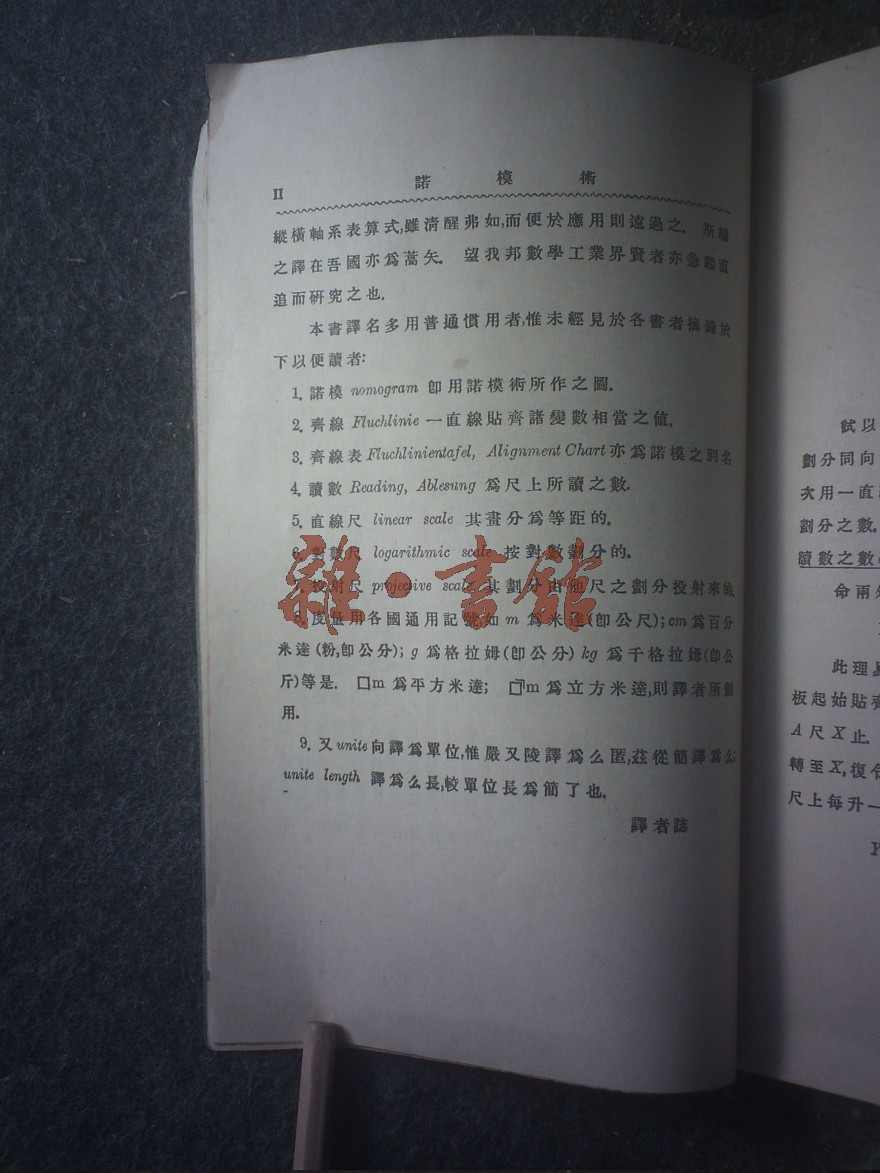 II 諾模術
縱橫軸系表算式,雖清醒弗如,而便於應用則遠過之. 斯編
之譯在吾國亦爲蒿矢. 望我邦數學工業界賢者亦急起直
追而硏究之也.
本書譯名多用普通慣用者,惟未經見於各書者摘錄於
下以便讀者:
1. 諾模 nomogram 卽用諾模術所作之圖.
2. 齊線 Fluchlinie 一直線貼齊諸變數相當之値.
3. 齊線表 Fluchlinientafel, Alignment Chart 亦爲諾模之別名
4. 讀數 Reading, Ablesung 爲尺上所讀之數.
5. 直線尺 linear scale 其畫分爲等距的.
6. 對數尺 logarithmic scale 按對數劃分的.
7. 投射尺 projective scale 其劃分由他尺之劃分投射來的.
8. 度量用各國通用記號,如 m 爲米達(卽公尺); cm 爲百分
米達(粉,卽公分); g 爲格拉姆(卽公分) kg 爲千格拉姆(卽公
斤)等是. □m 爲平方米達; m 爲立方米達,則譯者所
用.
9. 又 unite 向譯爲單位,惟嚴又陵譯爲么匿,茲從簡譯爲么;
unite length 譯爲么長,較單位長爲簡了也.
譯者誌
雜·書館
試以
劃分同向
次用一直
劃分之數.
讀數之數
命兩
此理
板起始貼齊
A 尺 X 止.
轉至X,復令
尺上每升一